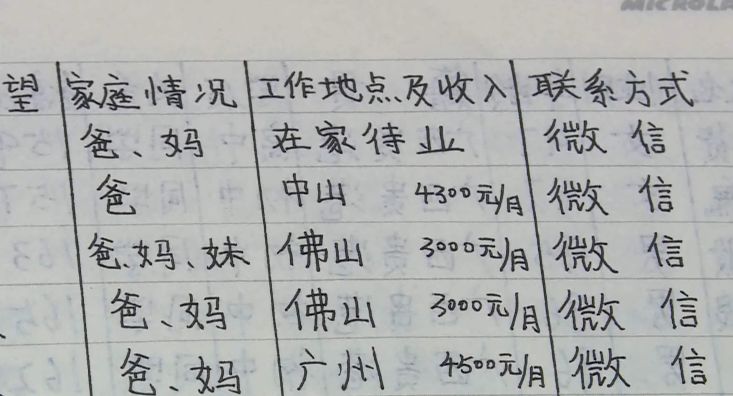 望 家庭情况 工作地点及收入 联系方式
爸、妈 在家待业 微信
爸 中山 4300元/月 微信
爸.妈、妹 佛山 3000元/月 微信
爸、妈 佛山 3000元/月 微信
爸、妈 广州 4500元/月 微信